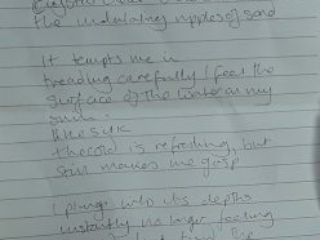 the undulating ripples of sand
It tempts me in
treading carefully I feel the
surface of the water on my
skin.
like silk
the cold is refreshing, but
still makes me gasp
I plunge into its depths
instantly no longer feeling